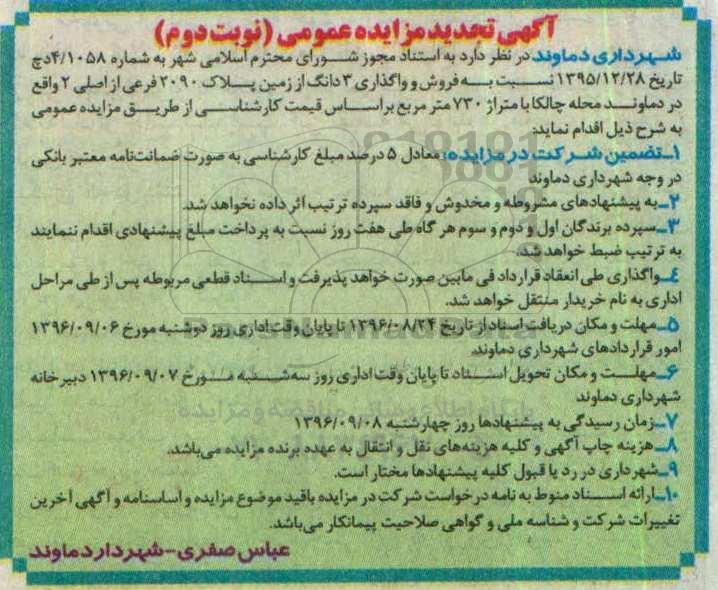 آگهی تجدید مزایده عمومی (نوبت دوم)
شهرداری دماوند در نظر دارد به استناد مجوز شورای محترم اسلامی شهر به شماره ۴/۱۰۵۸دچ
تاریخ ۱۳۹۵/۱۲/۲۸ نسبت به فروش و واگذاری ۳ دانگ از زمین پلاک ۲۰۹۰ فرعی از اصلی ۲ واقع
در دماوند محله چالکا با متراژ ۷۳۰ متر مربع براساس قیمت کارشناسی از طریق مزایده عمومی
به شرح ذیل اقدام نماید:
۱ـ تضمین شرکت در مزایده: معادل ۵ درصد مبلغ کارشناسی به صورت ضمانت‌نامه معتبر بانکی
در وجه شهرداری دماوند
۲ـ به پیشنهادهای مشروطه و مخدوش و فاقد سپرده ترتیب اثر داده نخواهد شد.
۳ـ سپرده برندگان اول و دوم و سوم هر گاه طی هفت روز نسبت به پرداخت مبلغ پیشنهادی اقدام ننمایند
به ترتیب ضبط خواهد شد.
٤ـ واگذاری طی انعقاد قرارداد فی مابین صورت خواهد پذیرفت و اسناد قطعی مربوطه پس از طی مراحل
اداری به نام خریدار منتقل خواهد شد.
۵ـ مهلت و مکان دریافت اسناد از تاریخ ۱۳۹۶/۰۸/۲۴ تا پایان وقت اداری روز دوشنبه مورخ ۱۳۹۶/۰۹/۰۶
امور قراردادهای شهرداری دماوند.
۶ـ مهلت و مکان تحویل اسناد تا پایان وقت اداری روز سه‌شنبه مورخ ۱۳۹۶/۰۹/۰۷ دبیرخانه
شهرداری دماوند
۷ـ زمان رسیدگی به پیشنهادها روز چهارشنبه ۱۳۹۶/۰۹/۰۸
۸ـ هزینه چاپ آگهی و کلیه هزینه‌های نقل و انتقال به عهده برنده مزایده می‌باشد.
۹ـ شهرداری در رد یا قبول کلیه پیشنهادها مختار است.
۱۰ـ ارائه اسناد منوط به نامه درخواست شرکت در مزایده باقید موضوع مزایده و اساسنامه و آگهی آخرین
تغییرات شرکت و شناسه ملی و گواهی صلاحیت پیمانکار می‌باشد.
عباس صفری - شهردار دماوند